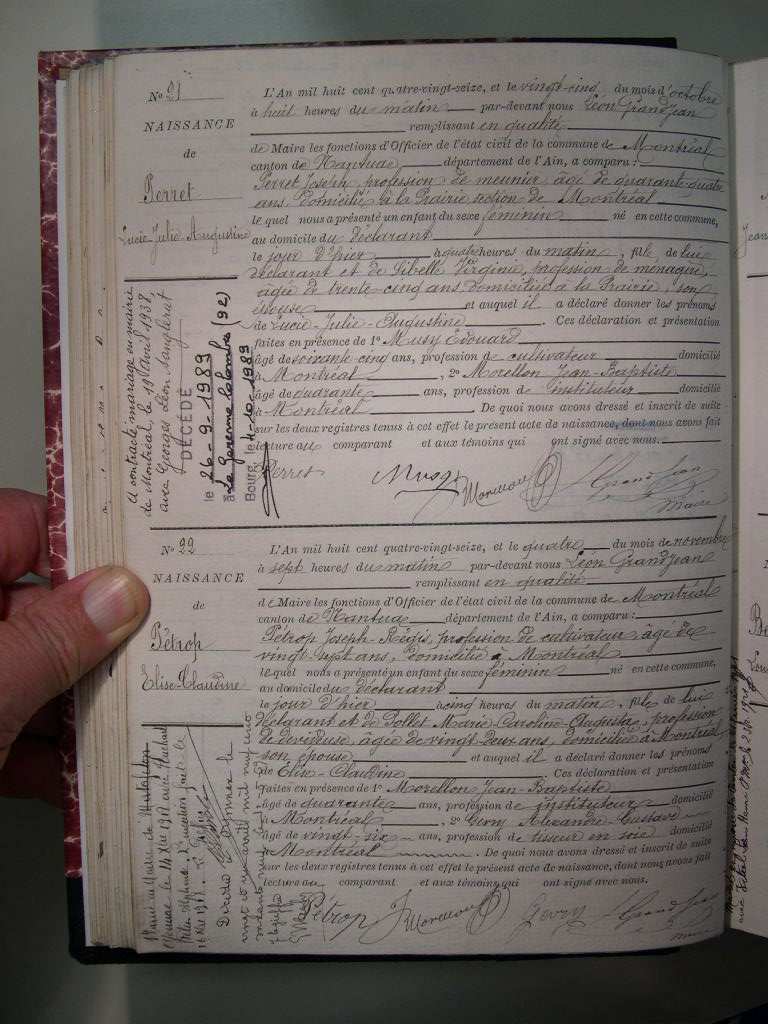 No 21
NAISSANCE
de
Perret
Lucie-Julie-Augustine
L'An mil huit cent quatre-vingt-seize, et le vingt-cinq du mois d'octobre
à huit heures du matin par-devant nous Léon Grandjean
remplissant en qualité
de Maire les fonctions d'Officier de l'état civil de la commune de Montréal
canton de Nantua département de l'Ain, a comparu :
Perret Joseph, profession de meunier, âgé de quarante-quatre
ans, domicilié à la Prairie section de Montréal
le quel nous a présenté un enfant du sexe féminin né en cette commune,
au domicile du déclarant
le jour d'hier à quatre heures du matin, fille de lui
déclarant et de Sibelle Virginie, profession de ménagère,
âgée de trente-cinq ans domiciliée à la Prairie, son
épouse et auquel il a déclaré donner les prénoms
de Lucie-Julie-Augustine. Ces déclaration et présentation
faites en présence de 1o Musy Edouard
âgé de soixante cinq ans, profession de cultivateur domicilié
à Montréal, 2o Morellon Jean-Baptiste
âgé de quarante ans, profession de instituteur domicilié
à Montréal. De quoi nous avons dressé et inscrit de suite
sur les deux registres tenus à cet effet le présent acte de naissance, dont nous avons fait
lecture au comparant et aux témoins qui ont signé avec nous.
Perret Musy Morellon Grandjean
maire
A contracté mariage en mairie
de Montréal, le 19 avril 1938,
avec Georges Léon
DÉCÉDÉ
le 26-9-1989
à La Garenne Colombes (92)
Bourg, le 4-10-1989
No 22
NAISSANCE
de
Pétrop
Elise-Claudine
L'An mil huit cent quatre-vingt-seize, et le quatre du mois de novembre
à sept heures du matin par-devant nous Léon Grandjean
remplissant en qualité
de Maire les fonctions d'Officier de l'état civil de la commune de Montréal
canton de Nantua département de l'Ain, a comparu :
Pétrop Joseph-Régis, profession de cultivateur âgé de
vingt sept ans, domicilié à Montréal
le quel nous a présenté un enfant du sexe féminin né en cette commune,
au domicile du déclarant
le jour d'hier à cinq heures du matin, fille de lui
déclarant et de Pollet Marie-Caroline-Augusta, profession
de dévideuse, âgée de vingt-deux ans, domiciliée à Montréal
son épouse et auquel il a déclaré donner les prénoms
de Elise-Claudine. Ces déclaration et présentation
faites en présence de 1o Morellon Jean-Baptiste
âgé de quarante ans, profession de instituteur domicilié
à Montréal, 2o Gevry Alexandre Gustave
âgé de vingt-six ans, profession de tisseur en soie domicilié
à Montréal. De quoi nous avons dressé et inscrit de suite
sur les deux registres tenus à cet effet le présent acte de naissance, dont nous avons fait
lecture au comparant et aux témoins qui ont signé avec nous.
Pétrop Morellon Gevry Grandjean
maire